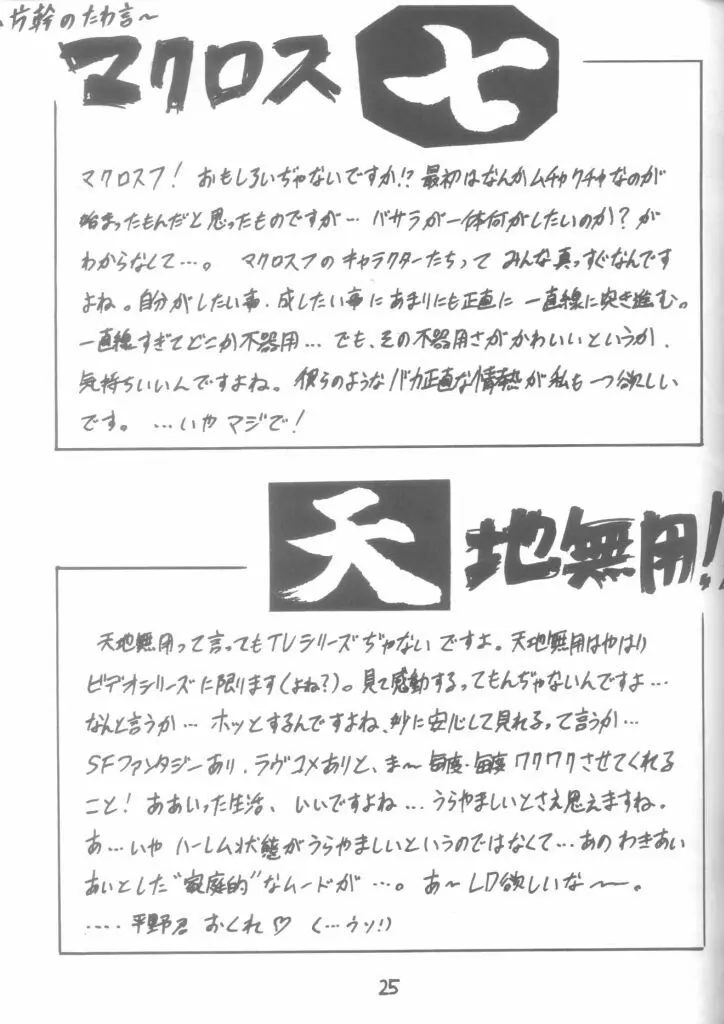 片幹のたわ言〜
マクロス七
マクロス7! おもしろいぢゃないですか!? 最初はなんかムチャクチャなのが
始まったもんだと思ったものですが… バサラが一体何がしたいのか?が
わからなくて…。 マクロス7のキャラクターたちって みんな真っすぐなんです
よね。自分がしたい事、成したい事にあまりにも正直に 一直線に突き進む。
一直線すぎてどこか不器用… でも、その不器用さがかわいいというか、
気持ちいいんですよね。彼らのようなバカ正直な情熱が私も一つ欲しい
です。 …いや マジで!
天地無用!
天地無用って言ってもTVシリーズぢゃないですよ。天地無用はやはり
ビデオシリーズに限ります(よね?)。見て感動するってもんぢゃないんですよ…
なんと言うか… ホッとするんですよね、妙に安心して見れるって言うか…
SFファンタジーあり、ラヴコメありと、ま〜毎度・毎度ワクワクさせてくれる
こと! ああいった生活、いいですよね… うらやましいとさえ思えますね。
あ…いや ハーレム状態がうらやましいというのではなくて…あの わきあい
あいとした"家庭的"なムードが …。 あ〜LD欲しいな〜。
…‥平野君 おくれ♡ (…ウソ!)
25